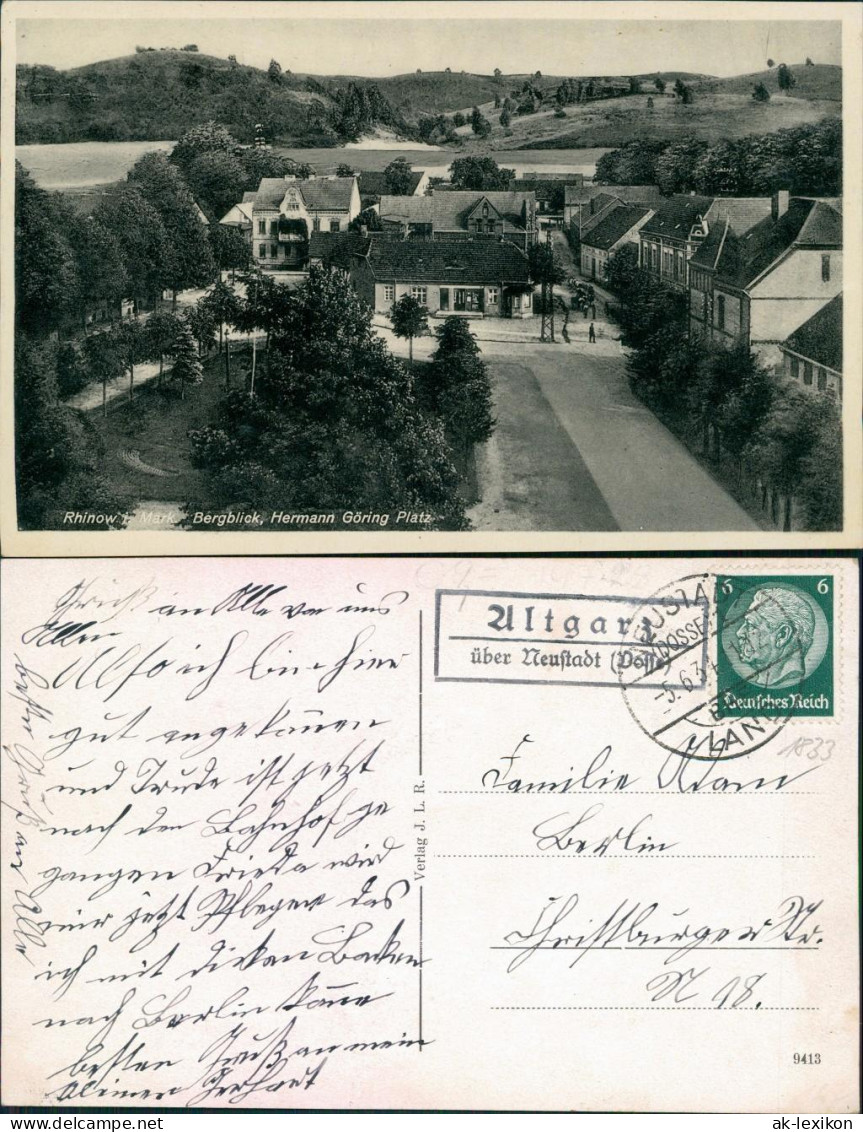 Rhinow i. Mark. Bergblick, Hermann Göring Platz
Gruß an Alle von uns
Allen
Also ich bin hier
gut angekommen
und Trude ist jetzt
nach den Bahnhof ge
gangen Frieda wird
mir jetzt Pflegen das
ich mit dicken Backen
nach Berlin komme
besten Gruß an mein
kleinen Gerhart
Verlag J. L. R.
Altgarz
über Neustadt (Dosse)
NEUSTADT
(DOSSE)
5.6.34
LAND
6 6
Deutsches Reich
1833
Familie Adam
Berlin
Christburger Str.
N 18.
9413
© ak-lexikon